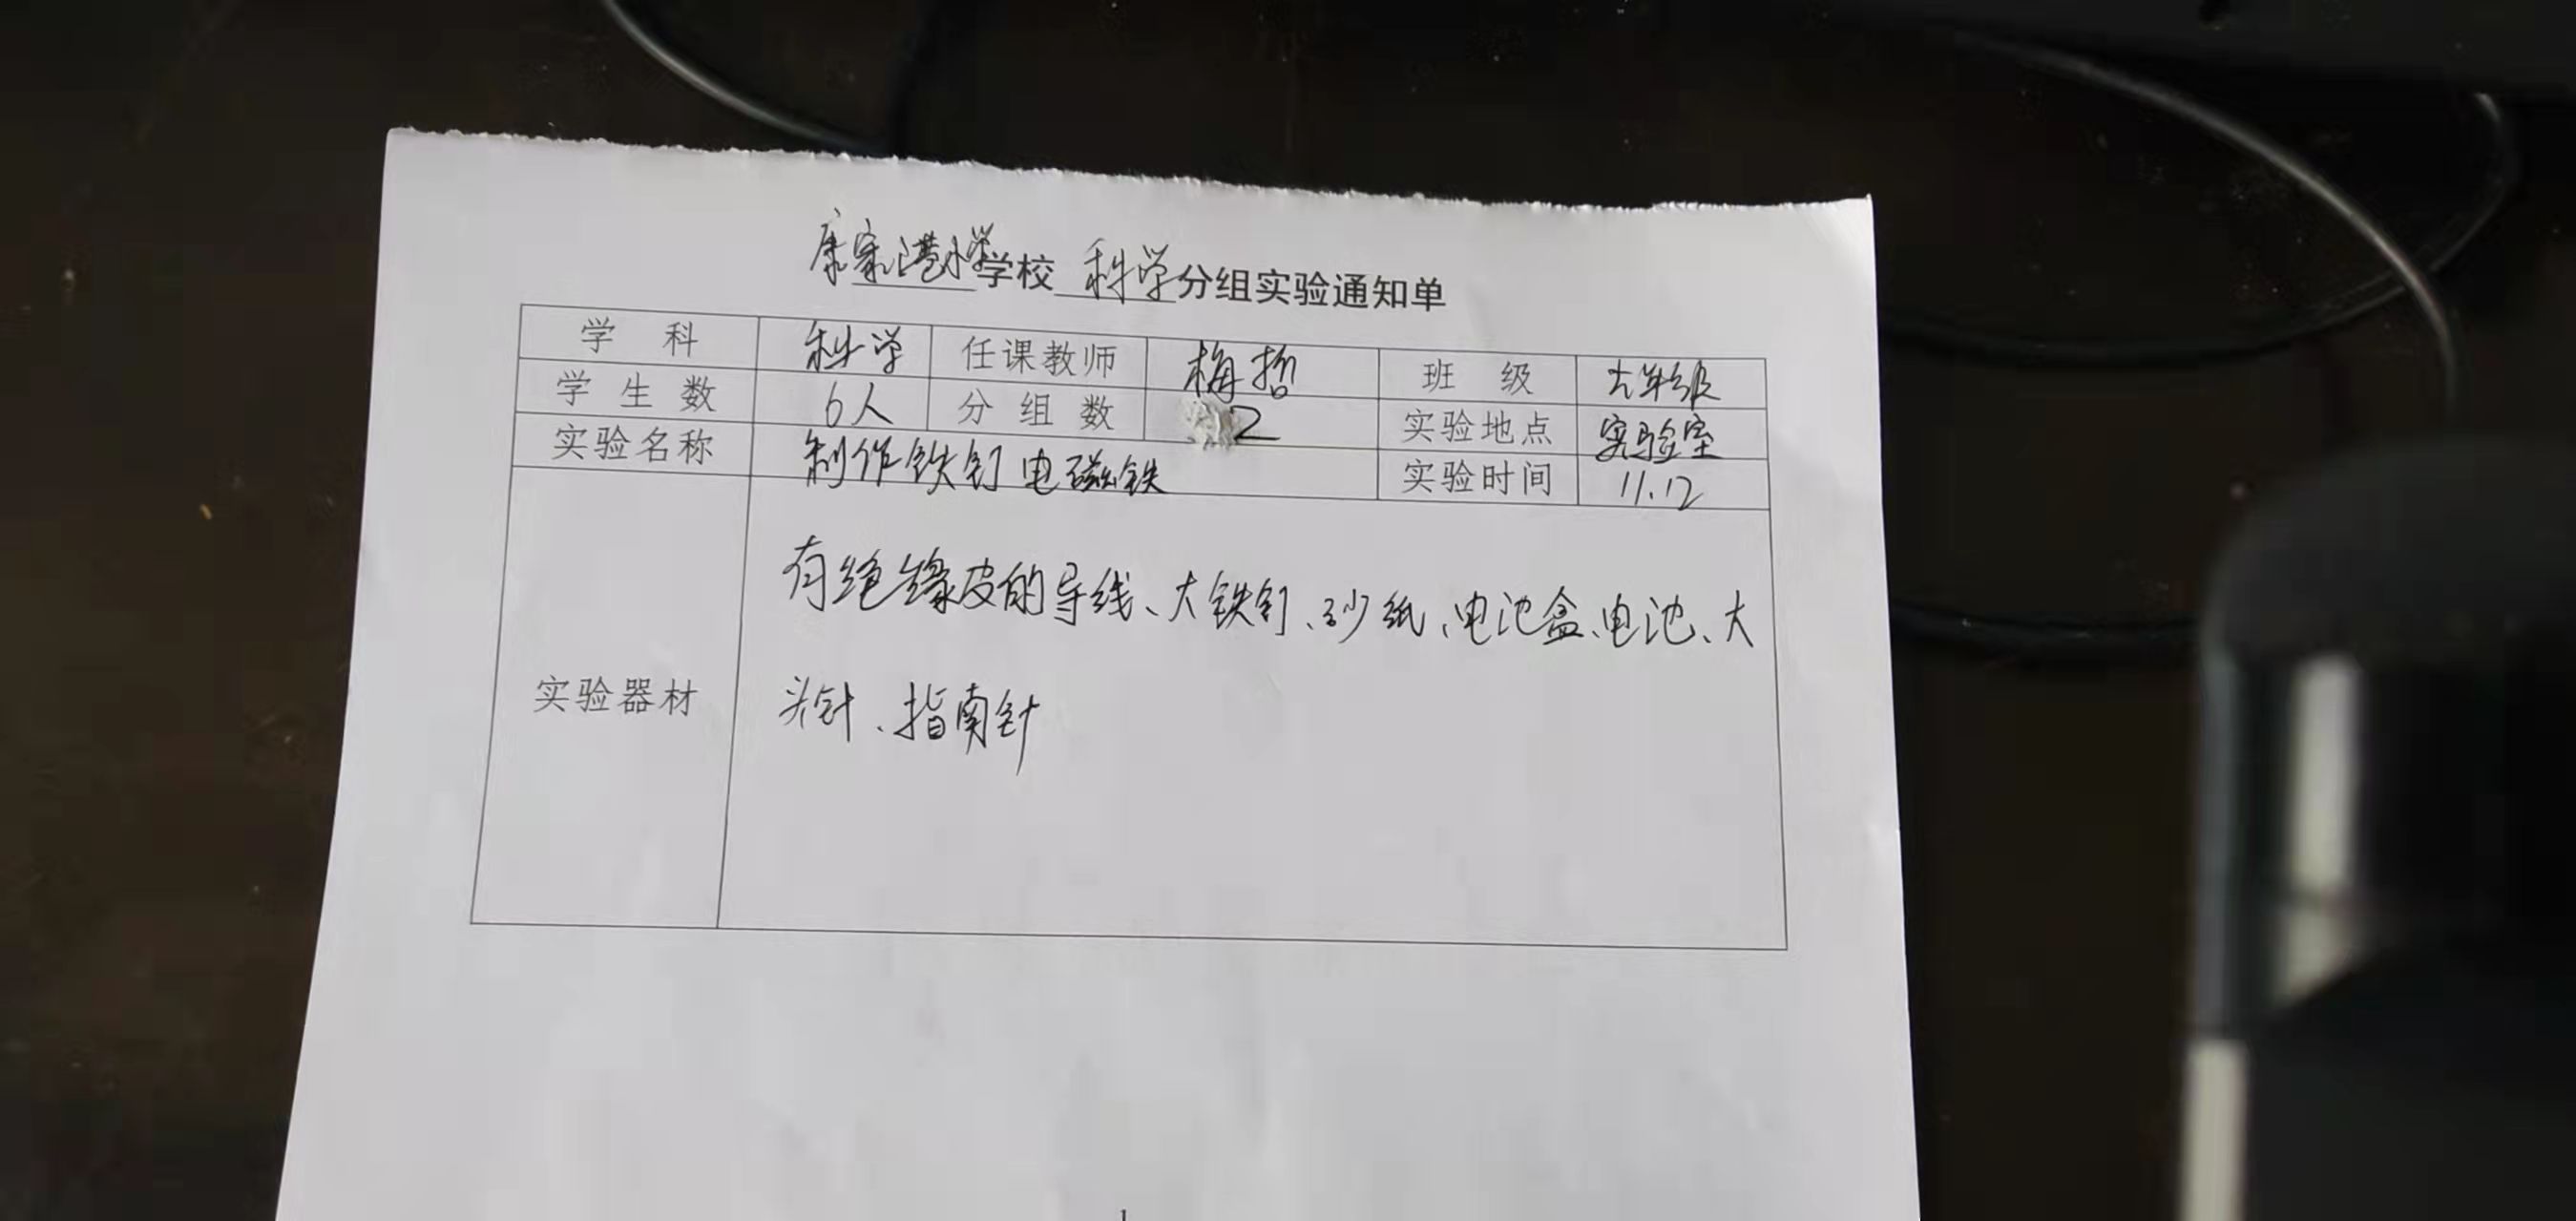 康家港小学学校 科学分组实验通知单
学 科 科学 任课教师 梅哲 班 级 六年级
学 生 数 6人 分 组 数 2 实验地点 实验室
实验名称 制作铁钉电磁铁 实验时间 11.12
实验器材 有绝缘皮的导线、大铁钉、砂纸、电池盒、电池、大
头针、指南针
1